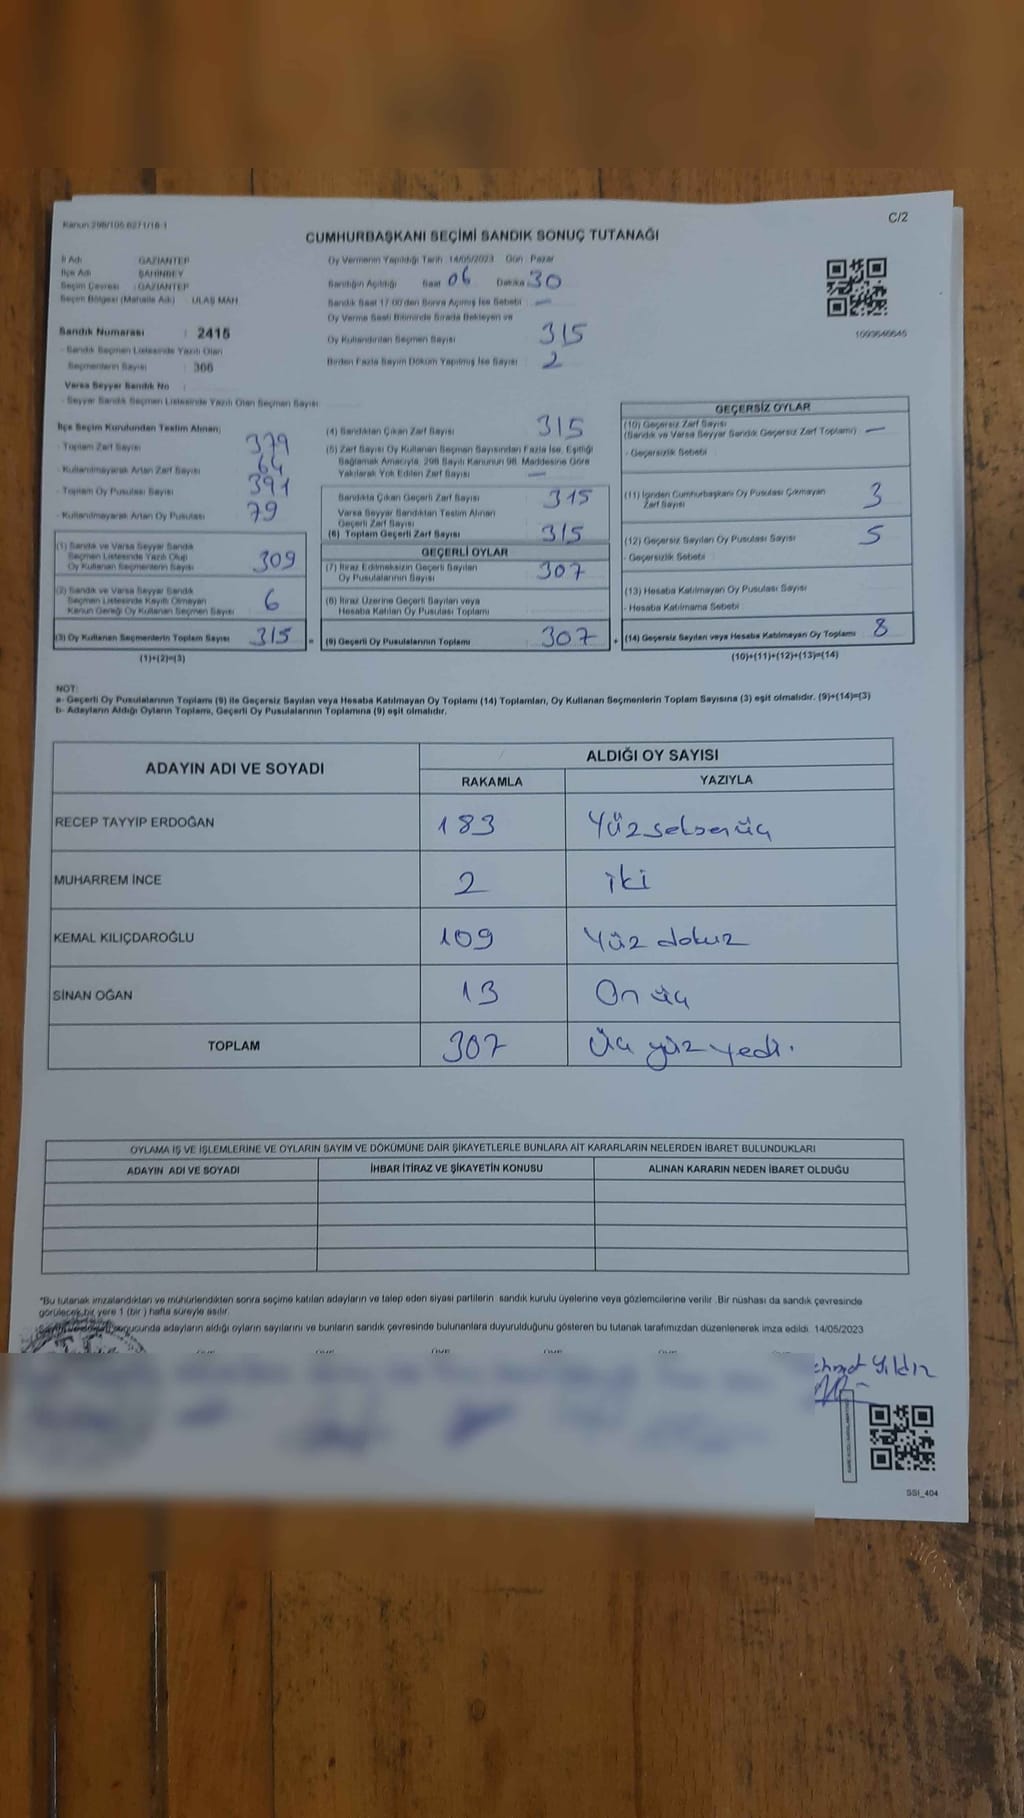 Kanun:298/105-6271/18-1
C/2
CUMHURBAŞKANI SEÇİMİ SANDIK SONUÇ TUTANAĞI
İl Adı GAZİANTEP
İlçe Adı ŞAHİNBEY
Seçim Çevresi : GAZİANTEP
Seçim Bölgesi (Mahalle Adı) : ULAŞ MAH
Sandık Numarası : 2415
- Sandık Seçmen Listesinde Yazılı Olan
Seçmenlerin Sayısı : 366
Varsa Seyyar Sandık No :
- Seyyar Sandık Seçmen Listesinde Yazılı Olan Seçmen Sayısı
Oy Vermenin Yapıldığı Tarih 14/05/2023 Gün : Pazar
Sandığın Açıldığı Saat 06 Dakika 30
Sandık Saat 17:00'den Sonra Açılmış İse Sebebi : —
Oy Verme Saati Bitiminde Sırada Bekleyen ve
Oy Kullandırılan Seçmen Sayısı 315
Birden Fazla Sayım Döküm Yapılmış İse Sayısı : 2
İlçe Seçim Kurulundan Teslim Alınan;
- Toplam Zarf Sayısı 379
- Kullanılmayarak Artan Zarf Sayısı 64
- Toplam Oy Pusulası Sayısı 391
- Kullanılmayarak Artan Oy Pusulası 79
(1) Sandık ve Varsa Seyyar Sandık
Seçmen Listesinde Yazılı Olup
Oy Kullanan Seçmenlerin Sayısı 309
(2) Sandık ve Varsa Seyyar Sandık
Seçmen Listesinde Kayıtlı Olmayan
Kanun Gereği Oy Kullanan Seçmen Sayısı 6
(3) Oy Kullanan Seçmenlerin Toplam Sayısı 315 =
(1)+(2)=(3)
(4) Sandıktan Çıkan Zarf Sayısı 315
(5) Zarf Sayısı Oy Kullanan Seçmen Sayısından Fazla İse, Eşitliği
Sağlamak Amacıyla, 298 Sayılı Kanunun 98. Maddesine Göre
Yakılarak Yok Edilen Zarf Sayısı —
Sandıkta Çıkan Geçerli Zarf Sayısı 315
Varsa Seyyar Sandıktan Teslim Alınan
Geçerli Zarf Sayısı
(6) Toplam Geçerli Zarf Sayısı 315
GEÇERLİ OYLAR
(7) İtiraz Edilmeksizin Geçerli Sayılan
Oy Pusulalarının Sayısı 307
(8) İtiraz Üzerine Geçerli Sayılan veya
Hesaba Katılan Oy Pusulası Toplamı
(9) Geçerli Oy Pusulalarının Toplamı 307 +
GEÇERSİZ OYLAR
(10) Geçersiz Zarf Sayısı
(Sandık ve Varsa Seyyar Sandık Geçersiz Zarf Toplamı) —
- Geçersizlik Sebebi
(11) İçinden Cumhurbaşkanı Oy Pusulası Çıkmayan
Zarf Sayısı 3
(12) Geçersiz Sayılan Oy Pusulası Sayısı 5
- Geçersizlik Sebebi
(13) Hesaba Katılmayan Oy Pusulası Sayısı
- Hesaba Katılmama Sebebi
(14) Geçersiz Sayılan veya Hesaba Katılmayan Oy Toplamı 8
(10)+(11)+(12)+(13)=(14)
NOT:
a- Geçerli Oy Pusulalarının Toplamı (9) ile Geçersiz Sayılan veya Hesaba Katılmayan Oy Toplamı (14) Toplamları, Oy Kullanan Seçmenlerin Toplam Sayısına (3) eşit olmalıdır. (9)+(14)=(3)
b- Adayların Aldığı Oyların Toplamı, Geçerli Oy Pusulalarının Toplamına (9) eşit olmalıdır.
ADAYIN ADI VE SOYADI
ALDIĞI OY SAYISI
RAKAMLA YAZIYLA
RECEP TAYYİP ERDOĞAN 183 Yüzseksenüç
MUHARREM İNCE 2 iki
KEMAL KILIÇDAROĞLU 109 Yüz dokuz
SİNAN OĞAN 13 On üç
TOPLAM 307 Üç yüz yedi.
OYLAMA İŞ VE İŞLEMLERİNE VE OYLARIN SAYIM VE DÖKÜMÜNE DAİR ŞİKAYETLERLE BUNLARA AİT KARARLARIN NELERDEN İBARET BULUNDUKLARI
ADAYIN ADI VE SOYADI İHBAR İTİRAZ VE ŞİKAYETİN KONUSU ALINAN KARARIN NEDEN İBARET OLDUĞU
*Bu tutanak imzalandıktan ve mühürlendikten sonra seçime katılan adayların ve talep eden siyasi partilerin sandık kurulu üyelerine veya gözlemcilerine verilir .Bir nüshası da sandık çevresinde
görülecek bir yere 1 (bir ) hafta süreyle asılır.
sonucunda adayların aldığı oyların sayılarını ve bunların sandık çevresinde bulunanlara duyurulduğunu gösteren bu tutanak tarafımızdan düzenlenerek imza edildi. 14/05/2023
Yıldız
SSI_404